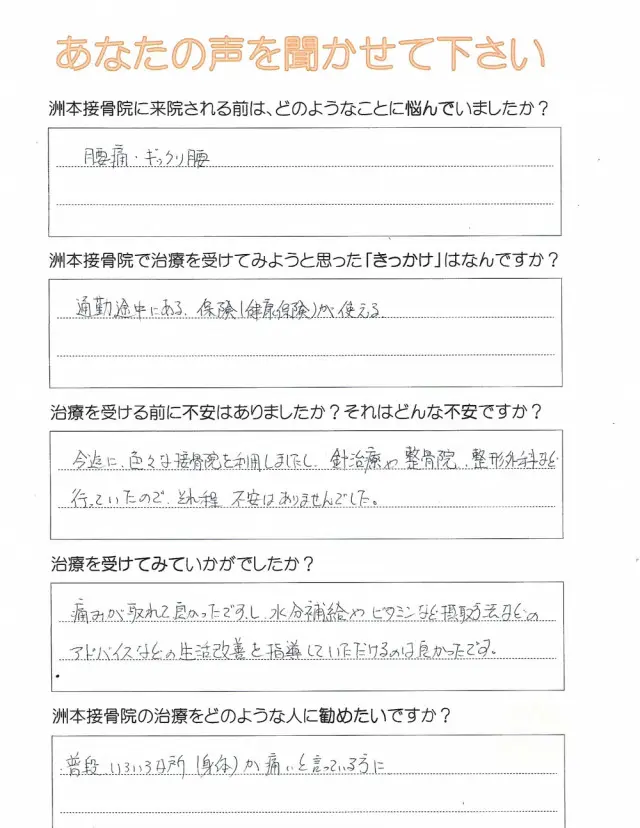 あなたの声を聞かせて下さい
洲本接骨院に来院される前は、どのようなことに悩んでいましたか？
腰痛・ギックリ腰
洲本接骨院で治療を受けてみようと思った「きっかけ」はなんですか？
通勤途中にある、保険(健康保険)が使える
治療を受ける前に不安はありましたか？それはどんな不安ですか？
今迄に、色々な接骨院を利用しましたし、針治療や整骨院、整形外科など
行っていたので、それ程 不安はありませんでした。
治療を受けてみていかがでしたか？
痛みが取れて良かったですし、水分補給や ビタミンなど摂取方法などの
アドバイスなどの生活改善を指導していただけるのは良かったです。
洲本接骨院の治療をどのような人に勧めたいですか？
普段、いろいろな所(身体)が痛いと言っている方に